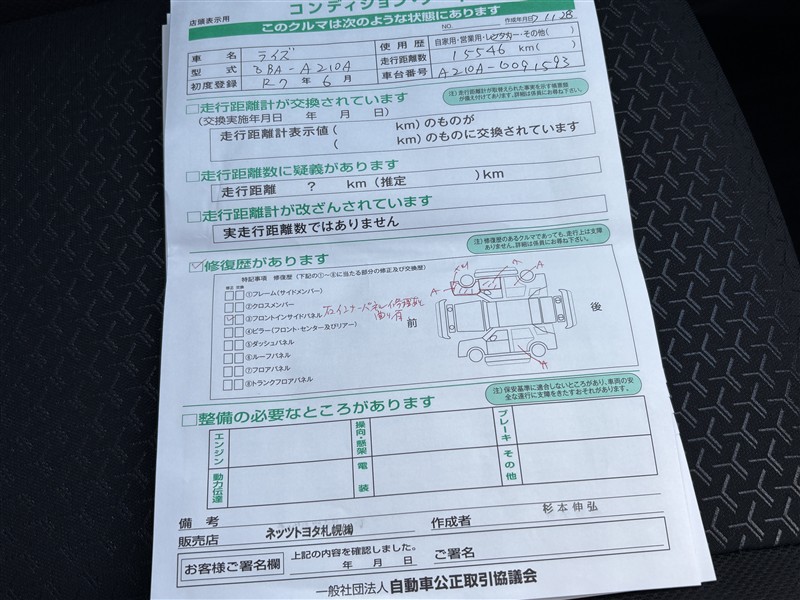 店頭表示用
コンディション・ノート
このクルマは次のような状態にあります
NO. 作成年月日 11.28
車名 ライズ 使用歴 自家用・営業用・レンタカー・その他( )
型式 3BA-A210A 走行距離数 15546 km( )
初度登録 R7年6月 車台番号 A210A-0091593
□走行距離計が交換されています
(注)走行距離計が取替えられた事実を示す措置板が備え付けてあります。詳細は係員にお尋ね下さい。
(交換実施年月日 年 月 日)
走行距離計表示値( km)のものが
( km)のものに交換されています
□走行距離数に疑義があります
走行距離 ? km(推定 )km
□走行距離計が改ざんされています
実走行距離数ではありません
修復歴があります
(注)修復歴のあるクルマであっても、走行上は支障ありません。詳細は係員にお尋ね下さい。
特記事項 修復歴(下記の①~⑧に当たる部分の修正及び交換歴)
修正 交換
①フレーム(サイドメンバー)
②クロスメンバー
③フロントインサイドパネル 右インナーパネル修理
④ピラー(フロント・センター及びリアー)
⑤ダッシュパネル
⑥ルーフパネル
⑦フロアパネル
⑧トランクフロアパネル
前 後
A A
A
□整備の必要なところがあります
(注)保安基準に適合しないところがあり、車両の安全な運行に支障をきたすおそれがあります。
エンジン 操向・懸架 ブレーキ
動力伝達 電装 その他
備考
販売店 ネッツトヨタ札幌㈱ 作成者 杉本伸弘
お客様ご署名欄 上記の内容を確認しました。
年 月 日 ご署名
一般社団法人 自動車公正取引協議会